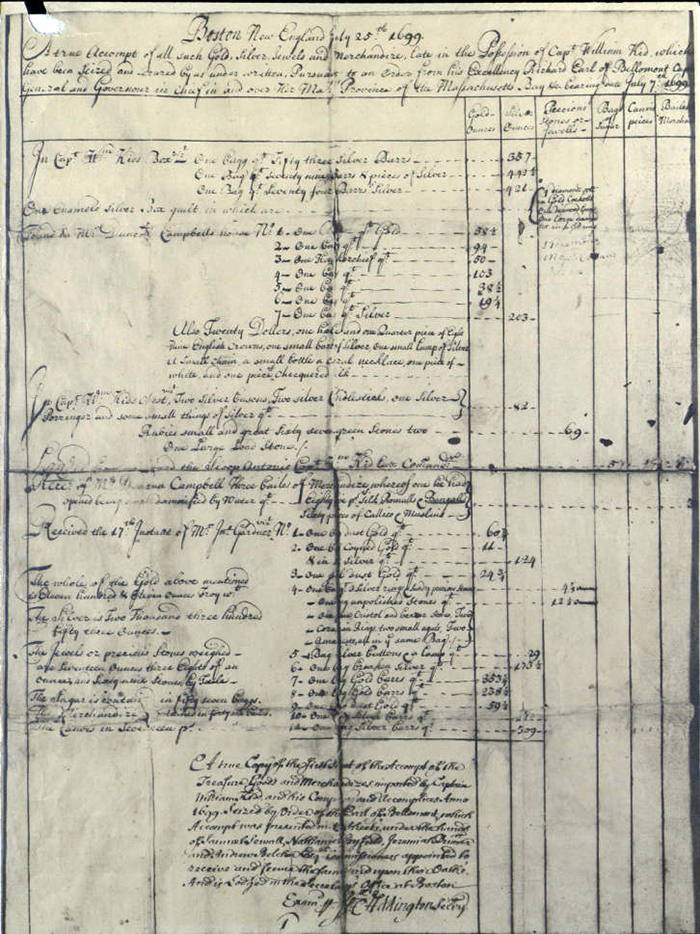 Boston New England July 25th 1699.
A true Accompt of all such Gold, Silver, Jewels and Merchandize, late in the Possession of Capt William Kid, which
have been Seized and Secured by us under written, Pursuant to an Order from his Excellency Richard Earl of Bellomont Capt
General and Governour in Chief in and over His Maj Province of the Massachusetts Bay &c bearing date July 7th 1699
Gold Ounces Silver Ounces Precious Stones or Jewells Bags Sugar Canvis peices Bailes Mercha
In Capt Wm Kids Box Vizt One bagg qt Fifty three Silver Barrs 357
One Bag qt Seventy nine Barrs & pieces of Silver 442½
One Bag qt Seventy four Barrs Silver 421
One Enameld Silver Box guilt in which are
Found in Mr Duncan Campbells house No 1- One Bag qt Gold 58½
2- One Bag qt 94
3- One Hankerchief qt 50
4- One bag qt 103
5- One bag qt 38½
6- One bag qt 19¼
7- One Bag qt Silver 203
Also Twenty Dollars, one halfe and one Quarter piece of Eight
Nine English Crowns, one small barr of Silver, one small Lump of Silver
a Small Chain, a small bottle a coral necklace, one piece of
white, and one piece Chequered silk
In Capt Wm Kids Chest Vizt Two Silver Basons, Two silver Candlesticks, one Silver
Porringer and some small things of Silver qt 82
Rubies small and great Sixty seven green Stones two 69
One Large Load Stone
the Sloop Antonio Capt Wm Kid late Comander
Recd of Mr Duncan Campbell Three bailes of Merchandize whereof one he had
opened being much damnified by Water qt Eighty five ps Silk Romalls & Bengalls
Sixty pieces of Callico & Muslins
Received the 17th Instant of Mr Jno Gardner Vizt No 1- One bag dust Gold qt 60¾
2- One bag Coyned Gold qt 11
& in it Silver qt 124
3- One pl dust Gold qt 24¾
The whole of the Gold above mentioned
is Eleven hundred & Eleven Ounces Troy wt
The Silver is Two Thousand three hundred
fifty three Ounces.
4- One bag 3 Silver rings Sundry precious stones
One bag unpolished Stones qt 12½
One ps Cristol and bezer stone, Two
Cornelian Rings two small agats, Two
Amathests, all in ye same Bag
The Jewels or precious Stones weighed
are Seventeen Ounces three Eights of an
Ounce, and Sixty nine stones by Tale
5- Bag Silver buttons a Lamp qt 29
6- One bag broaken Silver qt 173½
7- One bag Gold barrs qt 353¼
8- One bag Gold barrs qt 238½
9- One bag dust Gold qt 59½
10- One bag Silver barrs qt
11- One bag Silver barrs qt 309
The Sugar is contained in fifty seven baggs.
The Merchandize contained in forty one bailes.
The Canvis in Seventeen ps
A true Copy of the first part of the Accompt of the
Treasure, Goods and Merchandizes imported by Captain
William Kid and his Company and Accomplices Anno
1699. Seized by Order of the Earl of Bellomont, which
Accompt was presented under the hands
of Samuel Sewall, Nathaniel Byfield, Jeremiah Dummer
and Andrew Belcher Esqrs Commissioners appointed to
receive and secure the same and upon their Oaths.
And is Lodged in the Secretarys Office at Boston
Exam pr Is Addington Secry